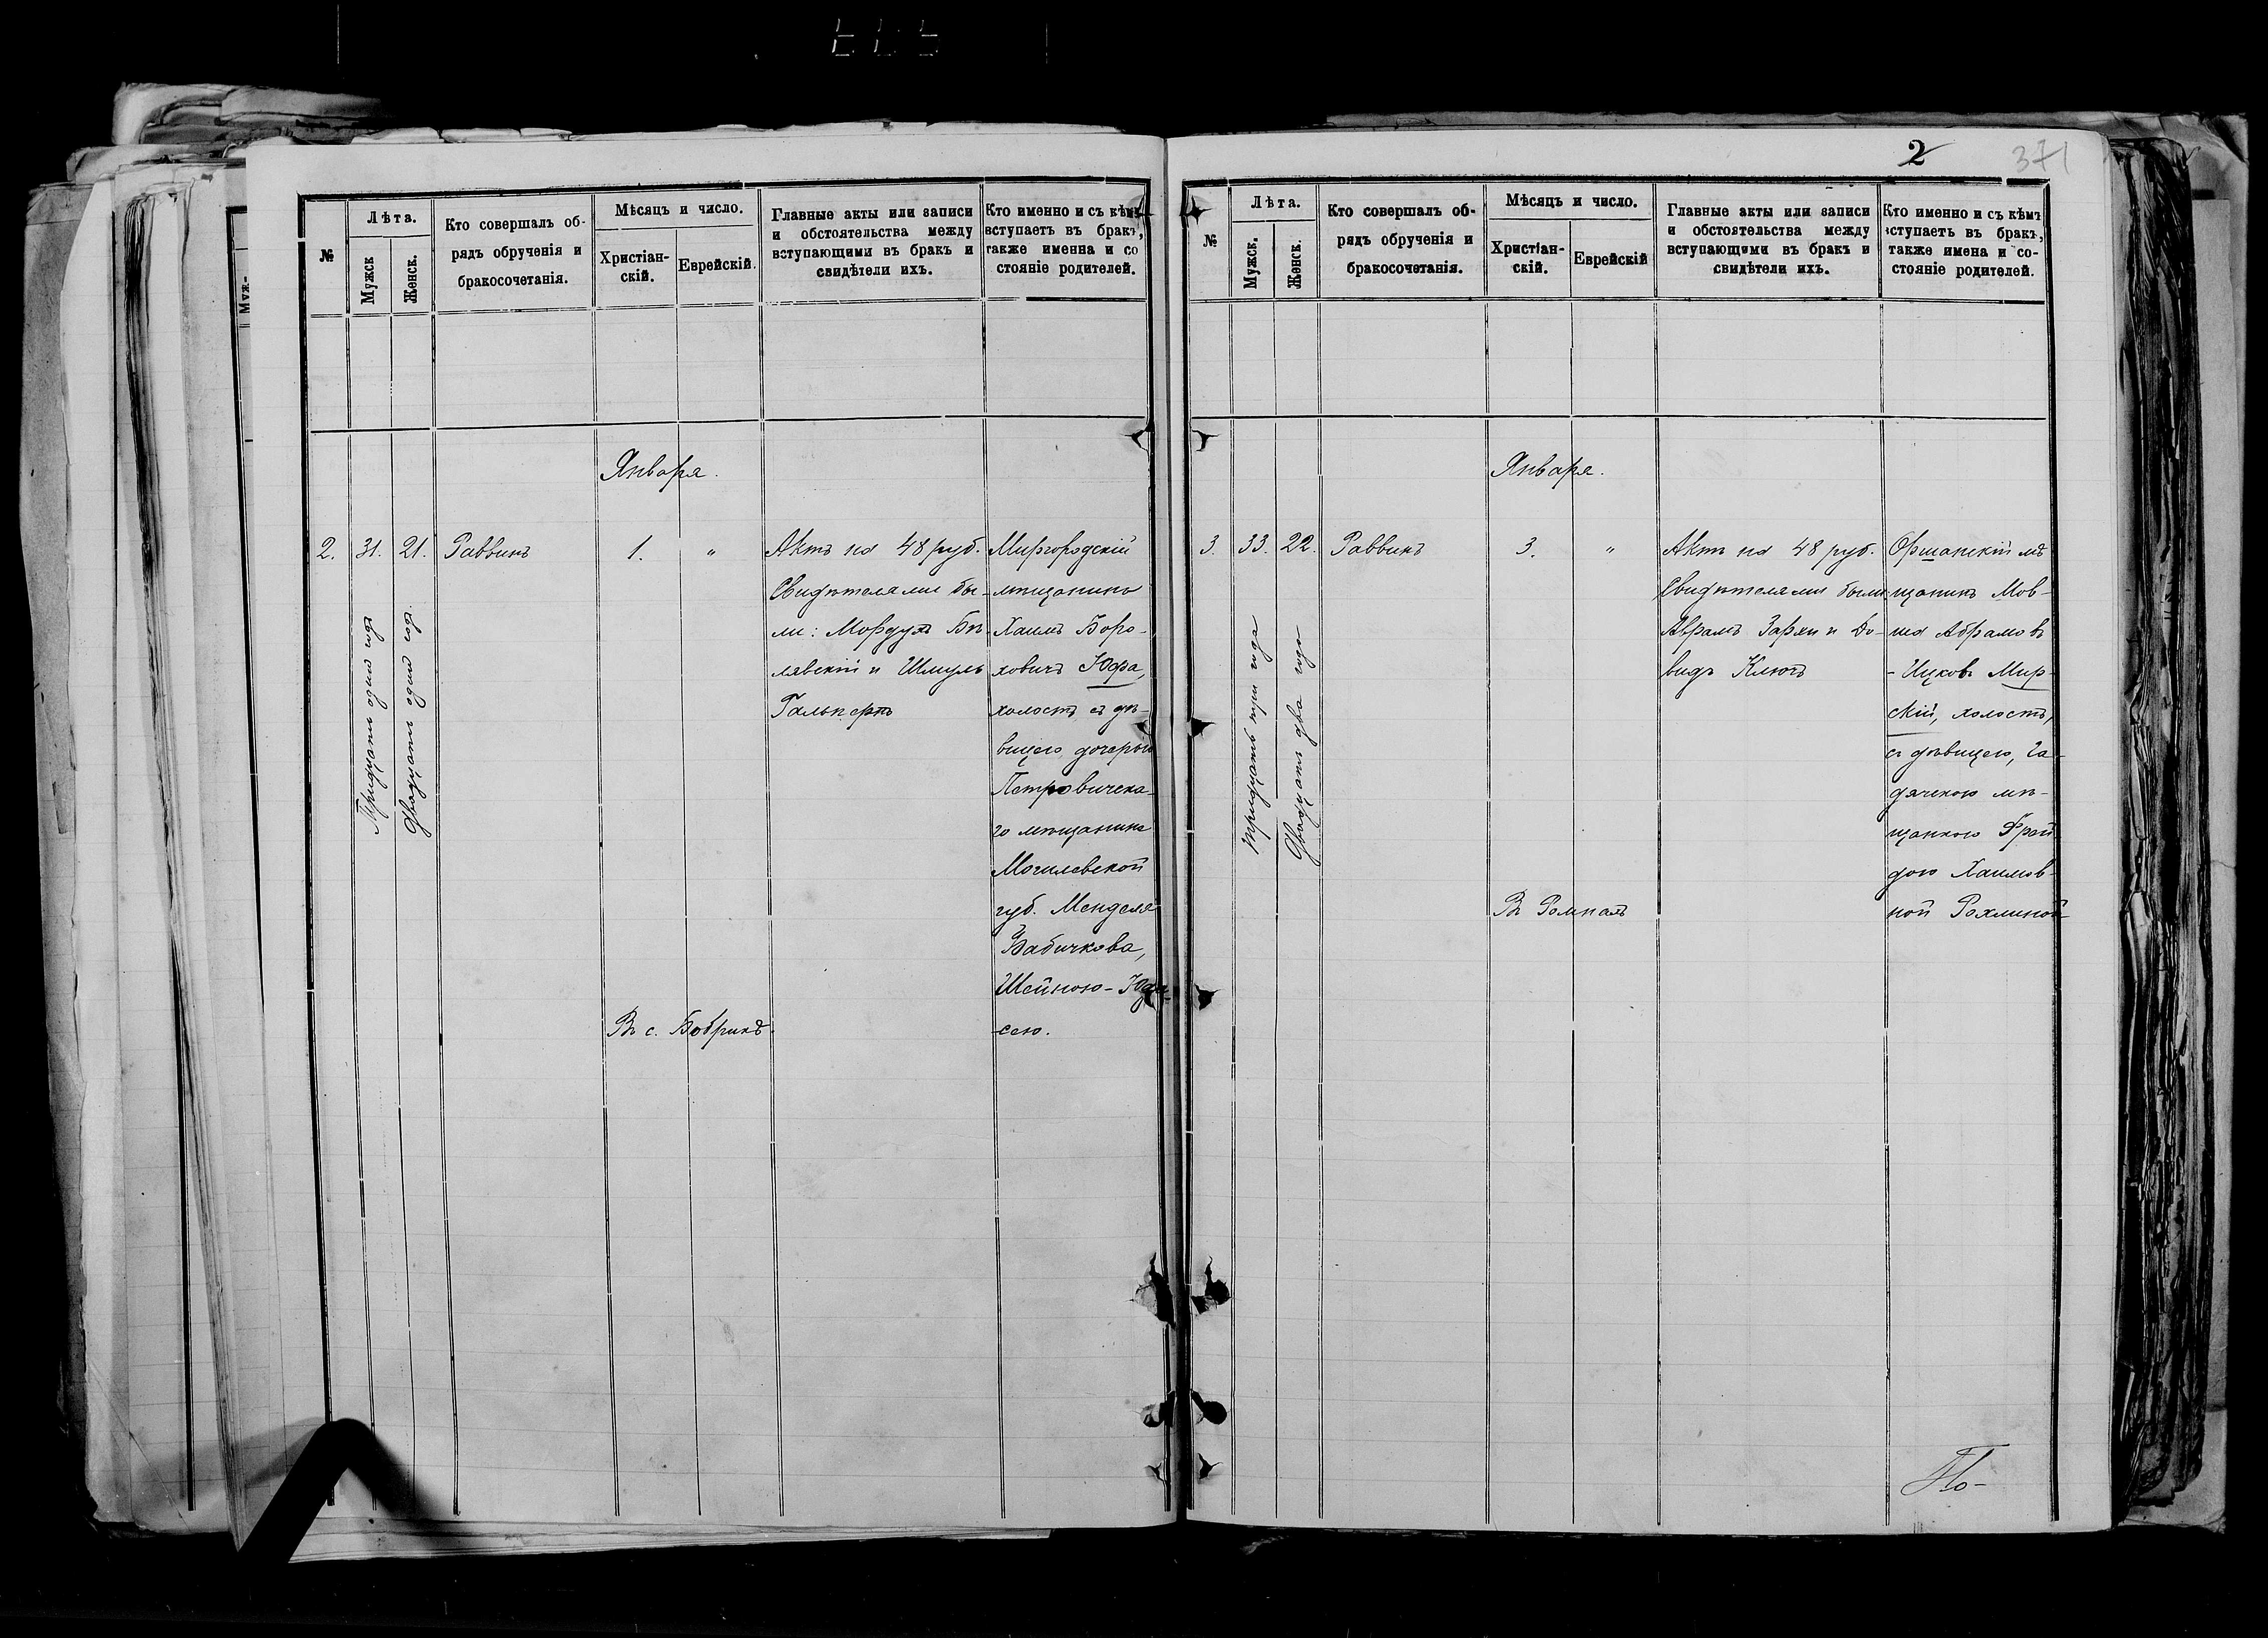 2
371
№
Лѣта.
Мужск
Женск.
Кто совершалъ об-
рядъ обрученія и
бракосочетанія.
Мѣсяцъ и число.
Христіан-
скій.
Еврейскій.
Главные акты или записи
и обстоятельства между
вступающими въ бракъ и
свидѣтели ихъ.
Кто именно и съ кѣмъ
вступаетъ въ бракъ,
также имена и со
стояніе родителей.
Января.
2.
31.
Тридцать одинъ годъ
21.
Двадцать одинъ годъ.
Раввинъ
1.
"
Въ с. Бобрикѣ.
Актъ на 48 руб.
Свидѣтелями бы-
ли: Мордухъ Бѣ-
лявскій и Шмуль
Гальпернъ
Миргородскій
мѣщанинъ
Хаимъ Боро-
ховичъ Юфа,
холостъ съ дѣ-
вицею дочерью
Петровичска-
го мѣщанина
Могилевской
губ. Менделя
Бабичкова,
Шейною-
сею.
№
Лѣта.
Мужск.
Женск.
Кто совершалъ об-
рядъ обрученія и
бракосочетанія.
Мѣсяцъ и число.
Христіан-
скій.
Еврейскій
Главные акты или записи
и обстоятельства между
вступающими въ бракъ и
свидѣтели ихъ.
Кто именно и съ кѣмъ
вступаетъ въ бракъ,
также имена и со-
стояніе родителей.
Января.
3.
33.
Тридцать три года
22.
Двадцать два года
Раввинъ
3.
"
Въ Ромнахъ
Актъ на 48 руб.
Свидѣтелями были
Абрамъ Зархи и До-
видъ Ключъ
Оршанскій мѣ
щанинъ Мов-
ша Абрамовъ
-Ицковъ Мир-
скій, холостъ,
съ дѣвицею, Га-
дячскою мѣ-
щанкою Фрей
дою Хаимов-
ной Рохлиной
По-